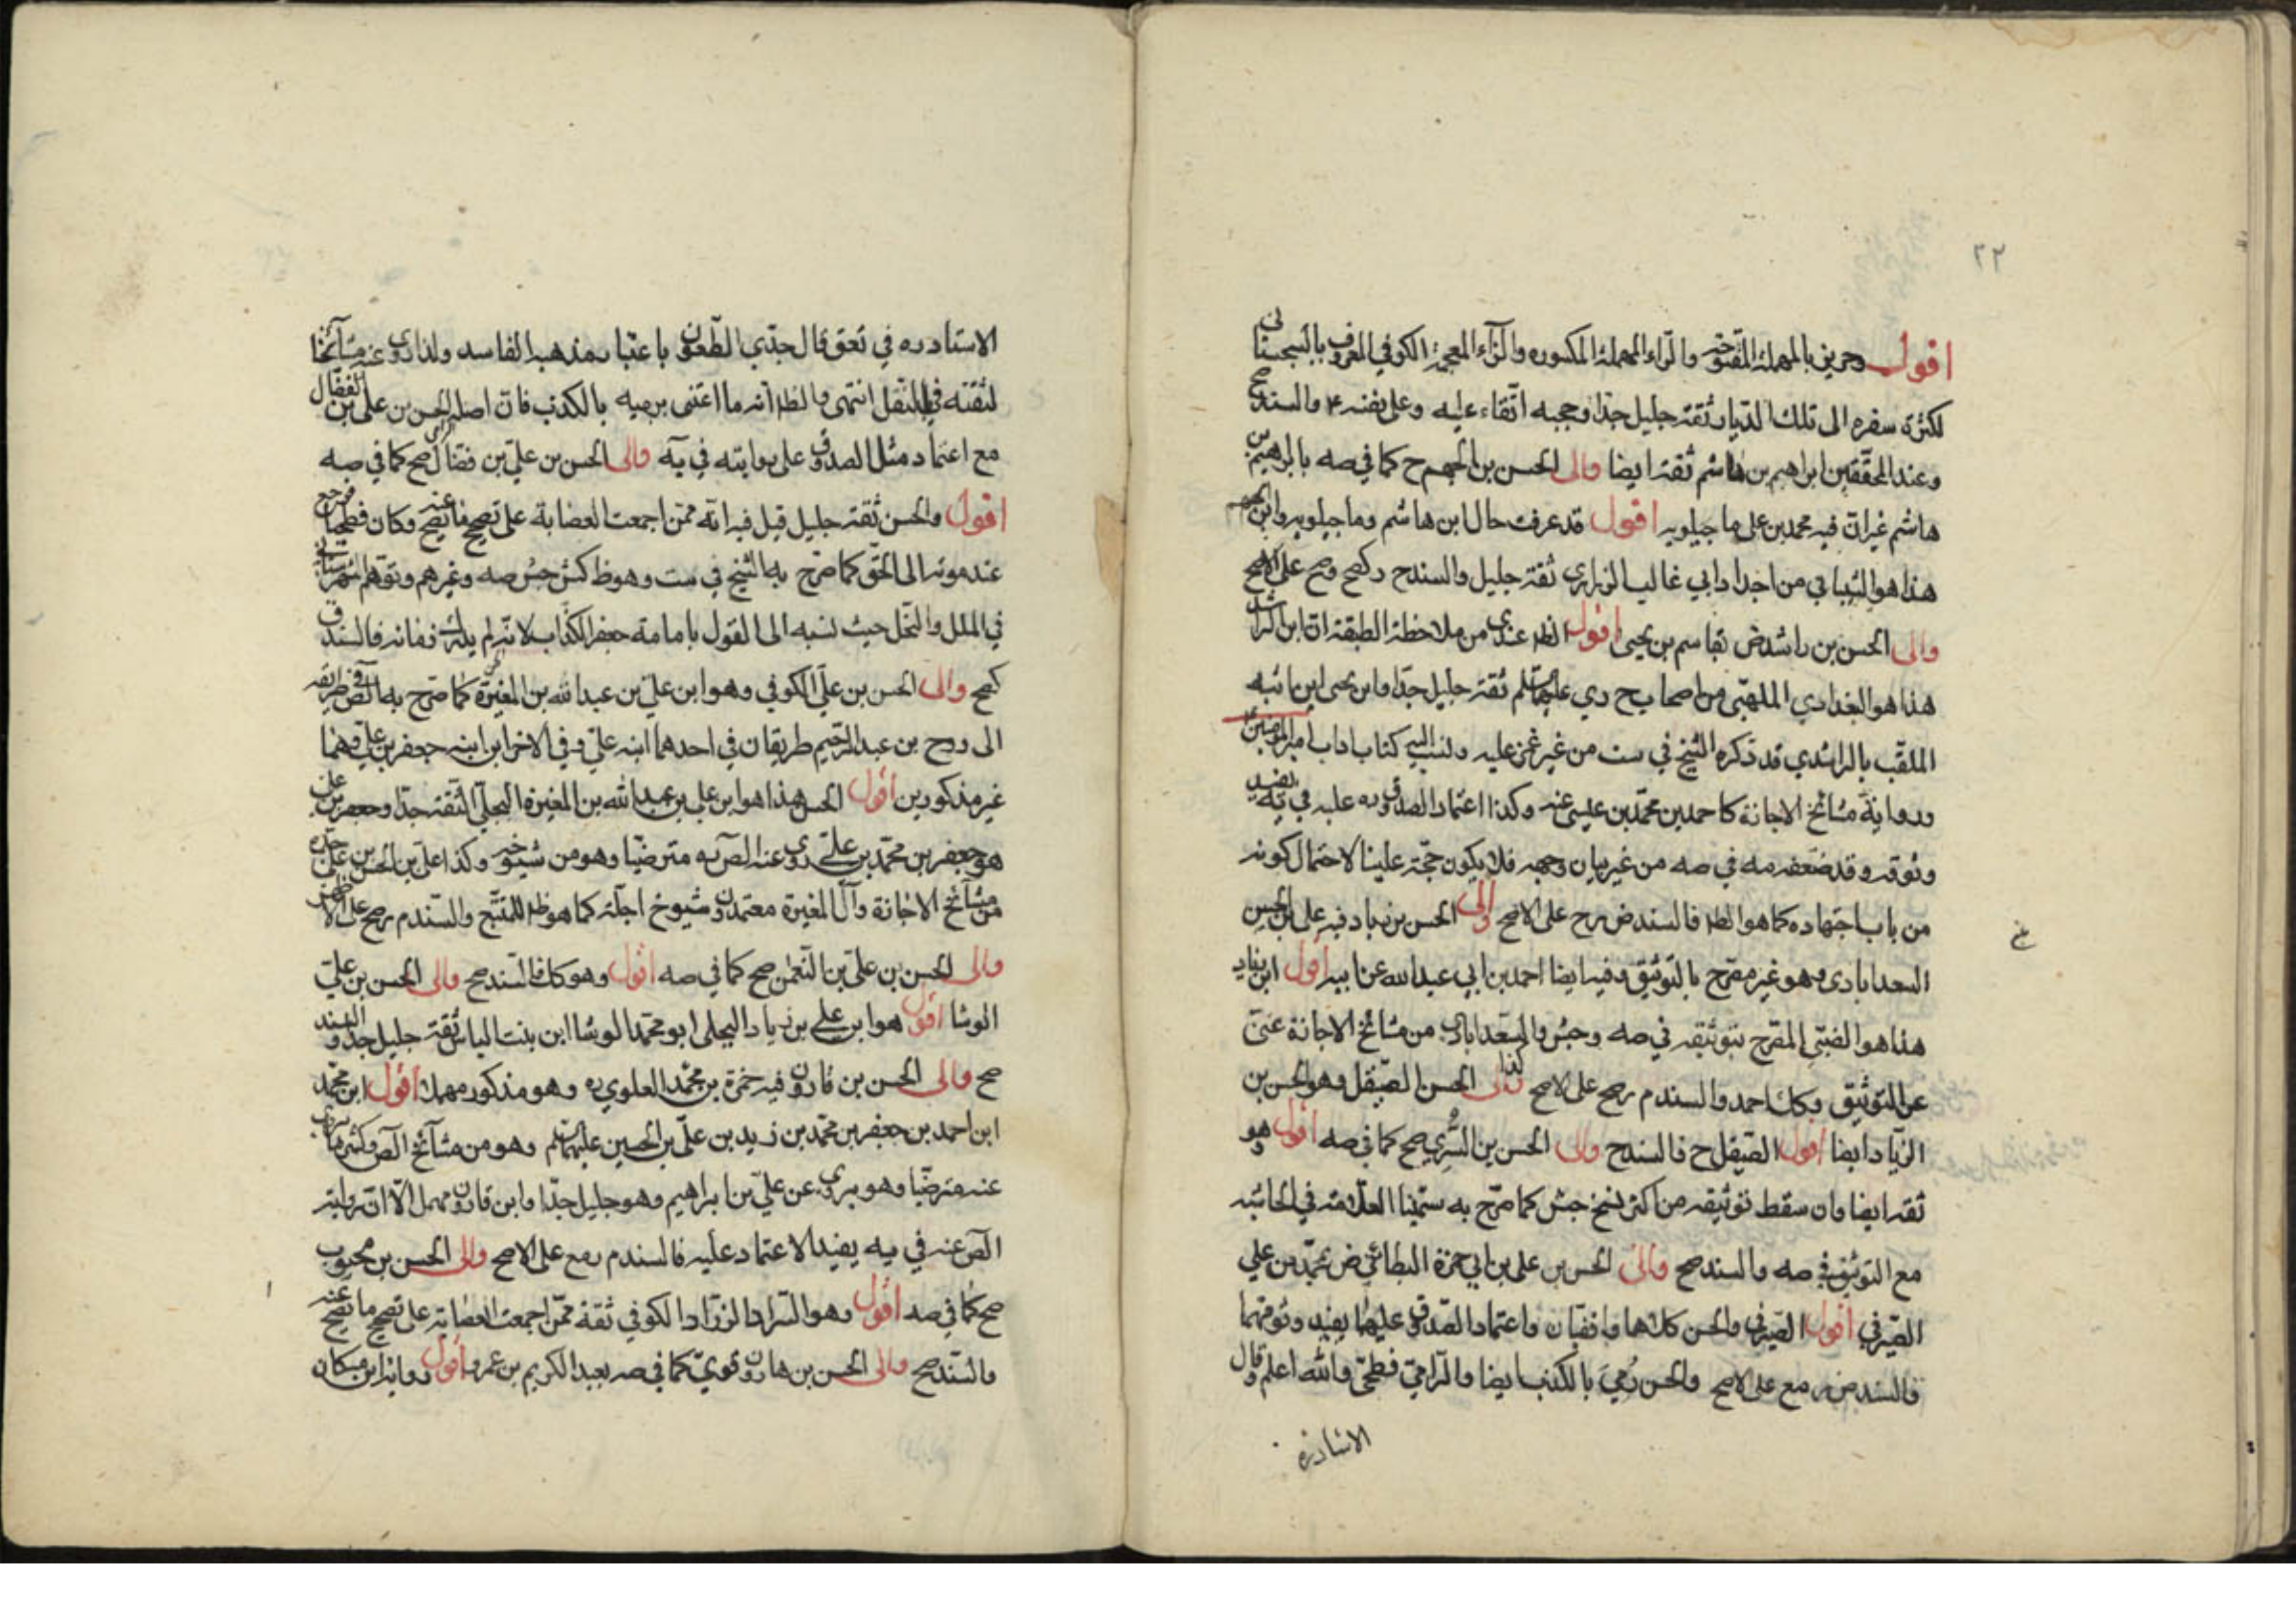 ٣٢
اقول وحريز بالمهملة المفتوحة والراء المهملة المكسوره والزاء المعجمة الكوفي المعروف بالسجستانى
لكثرة سفره الى تلك الديار ثقة جليل جدا وحجبه اتقاء عليه وعلى نفسه ع والسند صح
وعند المحققين ابراهيم بن هاشم ثقة ايضا والى الحسن بن الجهم ح كما في صه بابراهيم بن
هاشم غير ان فيه محمد بن على ماجيلويه اقول قد عرفت حال ابن هاشم وماجيلويه وابن الجهم
هذا هو الشيباني من اجداد ابي غالب الزرارى ثقة جليل والسند ح كصح وصح على الاصح
والى الحسن بن راشد ض بقاسم بن يحيى اقول الظ عندى من ملاحظة الطبقة ان ابن الراشد
هذا هو البغدادي المهلبى من اصحاب ج دي عليهما السلم ثقة جليل جدا وابن يحيى ابن ابنه
الملقب بالراشدي قد ذكره الشيخ في ست من غير غمز عليه ونسب اليه كتاب اداب امير المؤمنين
ورواية مشائخ الاجازة كاحمد بن محمد بن عيسى عنه وكذا اعتماد الصدوق ره عليه في يه يفيد
وثوقه وقد ضعفه مه في صه من غير بيان وجهه فلا يكون حجة علينا لاحتمال كونه
من باب اجتهاده كما هو الظ فالسند ض رح على الاصح والى الحسن بن زياد فيه على بن الحسين
السعدابادى وهو غير مصرح بالتوثيق وفيه ايضا احمد بن ابي عبدالله عن ابيه اقول ابن زياد
هذا هو الضبي المصرح بتوثيقه في صه وجش والسعدابادى من مشائخ الاجازة غنى
عن التوثيق وكك احمد والسند م رصح على الاصح وكذا الى الحسن الصيقل وهو الحسن بن
الزياد ايضا اقول الصيقل ح فالسند ح والى الحسن بن السرى صح كما في صه اقول وهو
ثقة ايضا وان سقط توثيقه من اكثر نسخ جش كما صرح به سمينا العلامة في الحاشيه
مع التوثيق في صه والسند صح والى الحسن بن على بن ابي حمزة البطائني ض بمحمد بن علي
الصيرفي اقول الصيرفي والحسن كلاهما واقفيان واعتماد الصدوق عليهما يفيد وثوقهما
فالسند ض رمع على الاصح والحسن رُمِيَ بالكذب ايضا والرامي فطحى والله اعلم وقال
الاستاد ره
الاستاد ره في تعق قال جدّي الطعون باعتبار مذهبه الفاسد ولذا روى عنه مشائخنا
لثقته في النقل انتهى والظ انه ما اعتنى برميه بالكذب فان اصله الحسن بن على بن الفضال
مع اعتماد مثل الصدوق على روايته في يه والى الحسن بن علي بن فضال صح كما في صه
اقول والحسن ثقة جليل قيل فيه انه ممن اجمعت العصابة على تصحيح ما تصح عنه وكان فطحيا فرجع
عند موته الى الحق كما صرح به الشيخ في ست وهو ظ كش جش صه وغيرهم وتوهم الشهرستانى
في الملل والنحل حيث نسبه الى القول بامامة جعفر الكذاب لانه لم يدرك زمانه فالسند ق
كصح والى الحسن بن علي الكوفي وهو ابن علي بن عبدالله بن المغيرة كما صرح به الص في طريقه
الى روح بن عبد الرحيم طريقان في احدهما ابنه علي وفي الاخر ابن ابنه جعفر بن على وهما
غير مذكورين اقول الحسن هذا هو ابن علي بن عبدالله بن المغيرة البجلي الثقة جدا وجعفر بن على
هو جعفر بن محمد بن على روى عنه الص ره مترضيا وهو من شيوخه وكذا على بن الحسن بن على جده
من مشائخ الاجازة وآل المغيرة معتمدون وشيوخ اجلة كما هو ظ للمتتبع والسند م رصح على الاظهر
والى الحسن بن علي بن النعمن صح كما في صه اقول وهو كك فالسند صح والى الحسن بن علي
الوشا اقول هو ابن على بن زياد البجلى ابو محمد الوشا ابن بنت الياس ثقة جليل جدا والسند
صح والى الحسن بن قارون فيه حمزة بن محمد العلوي ره وهو مذكور مهملا اقول ابن محمد
ابن احمد بن جعفر بن محمد بن زيد بن علي بن الحسين عليهم السلم وهو من مشائخ الص وكثيرا ما يروى
عنه مترضيا وهو يروى عن علي بن ابراهيم وهو جليل جدا وابن قارون مهمل الا ان رواية
الص عنه في يه يفيد الاعتماد عليه فالسند م رمع على الاصح والى الحسن بن محبوب
صح كما في صه اقول وهو السراد الزراد الكوفي ثقة ممن اجمعت العصابة على تصحيح ما تصح عنه
والسند صح والى الحسن بن هارون قويّ كما في صه بعبد الكريم بن عمرو اقول ورواية ابن مسكان